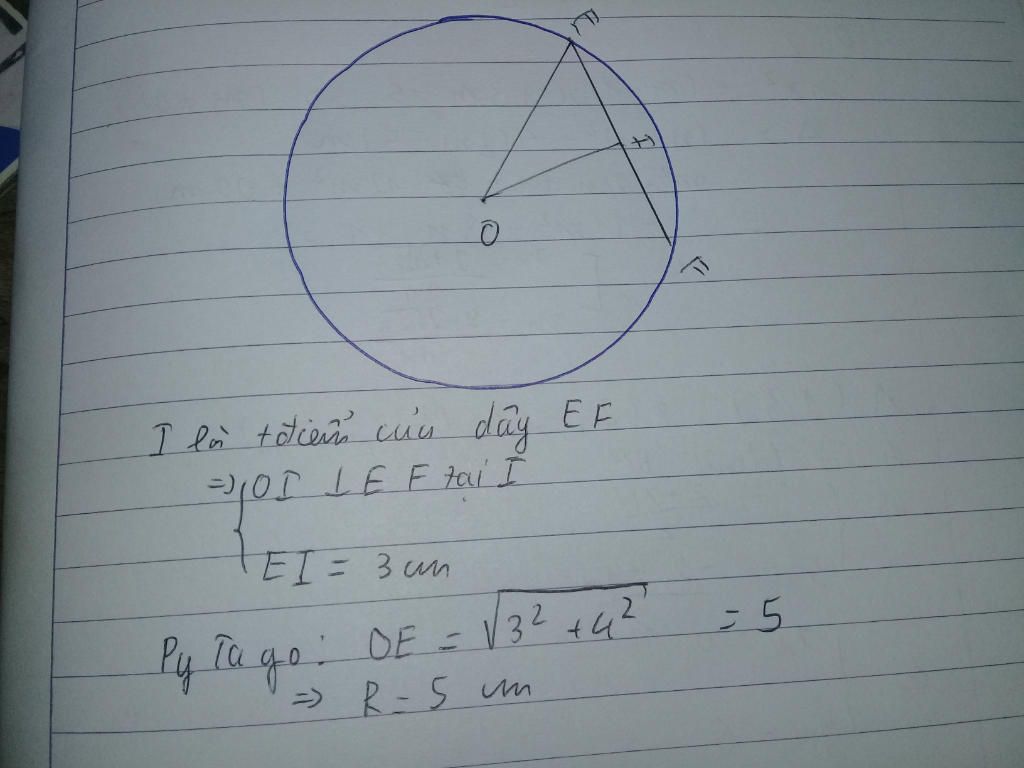 E
I
O
F
I là tđiểm của dây EF
=> OI ⊥ EF tại I
EI = 3 cm
Py Ta go: OE = √3² + 4² = 5
=> R = 5 cm